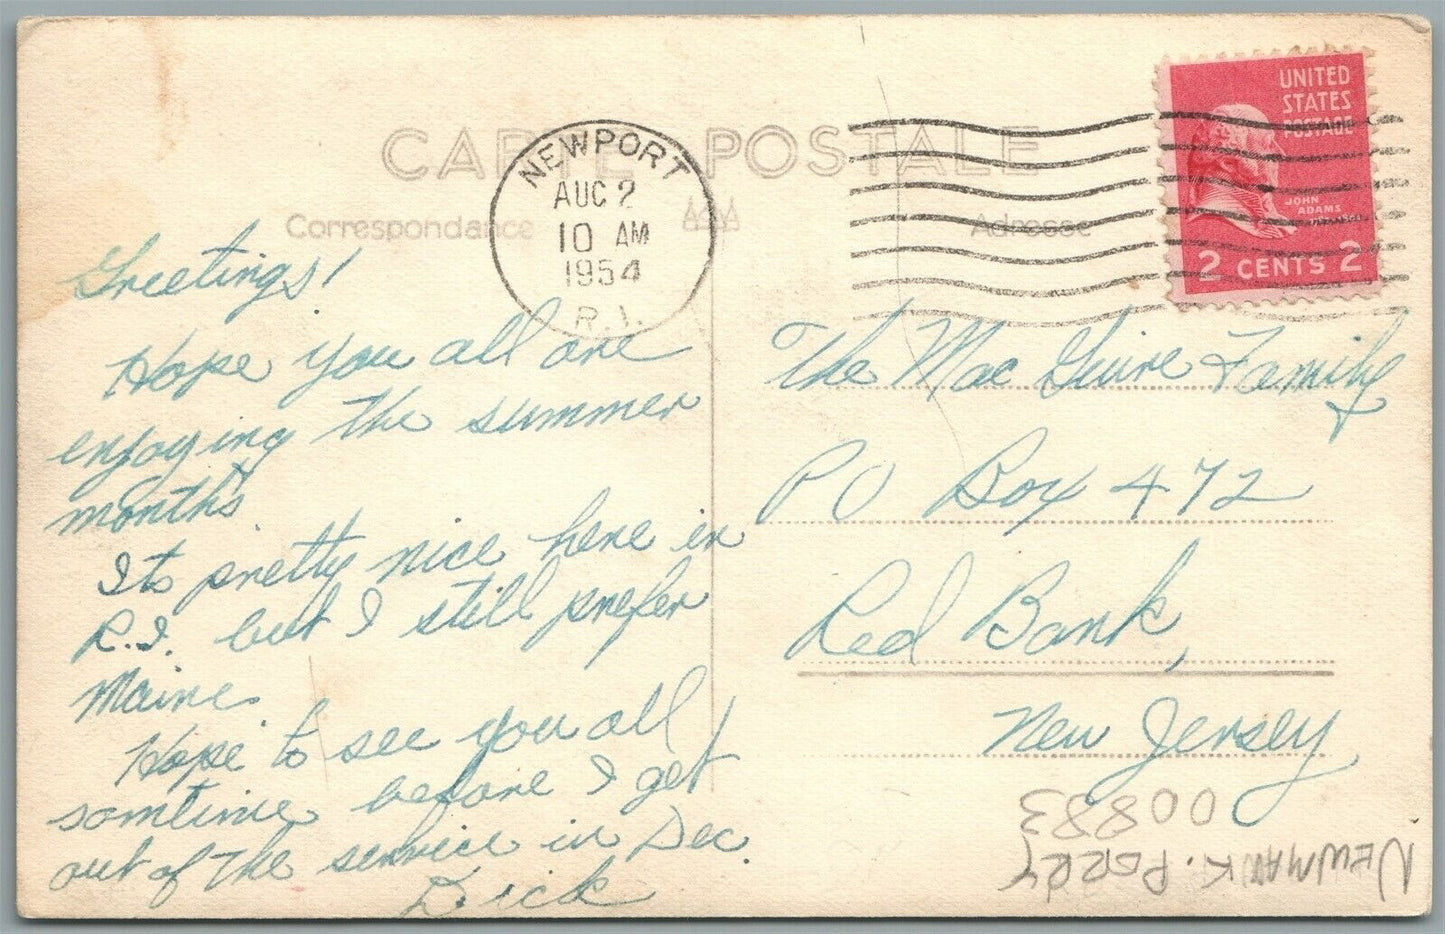 CARTE POSTALE
Correspondance
Adresse
NEWPORT
AUG 2
10 AM
1954
R.I.
UNITED
STATES
POSTAGE
JOHN
ADAMS
2 CENTS 2
Greetings!
Hope you all are
enjoying the summer
months
Its pretty nice here in
R.I. but I still prefer
Maine.
Hope to see you all
somtime before I get
out of the service in Dec.
Dick
The Mac Guire Family
PO Box 472
Red Bank,
New Jersey
00883
NEWMAN K. PERRY